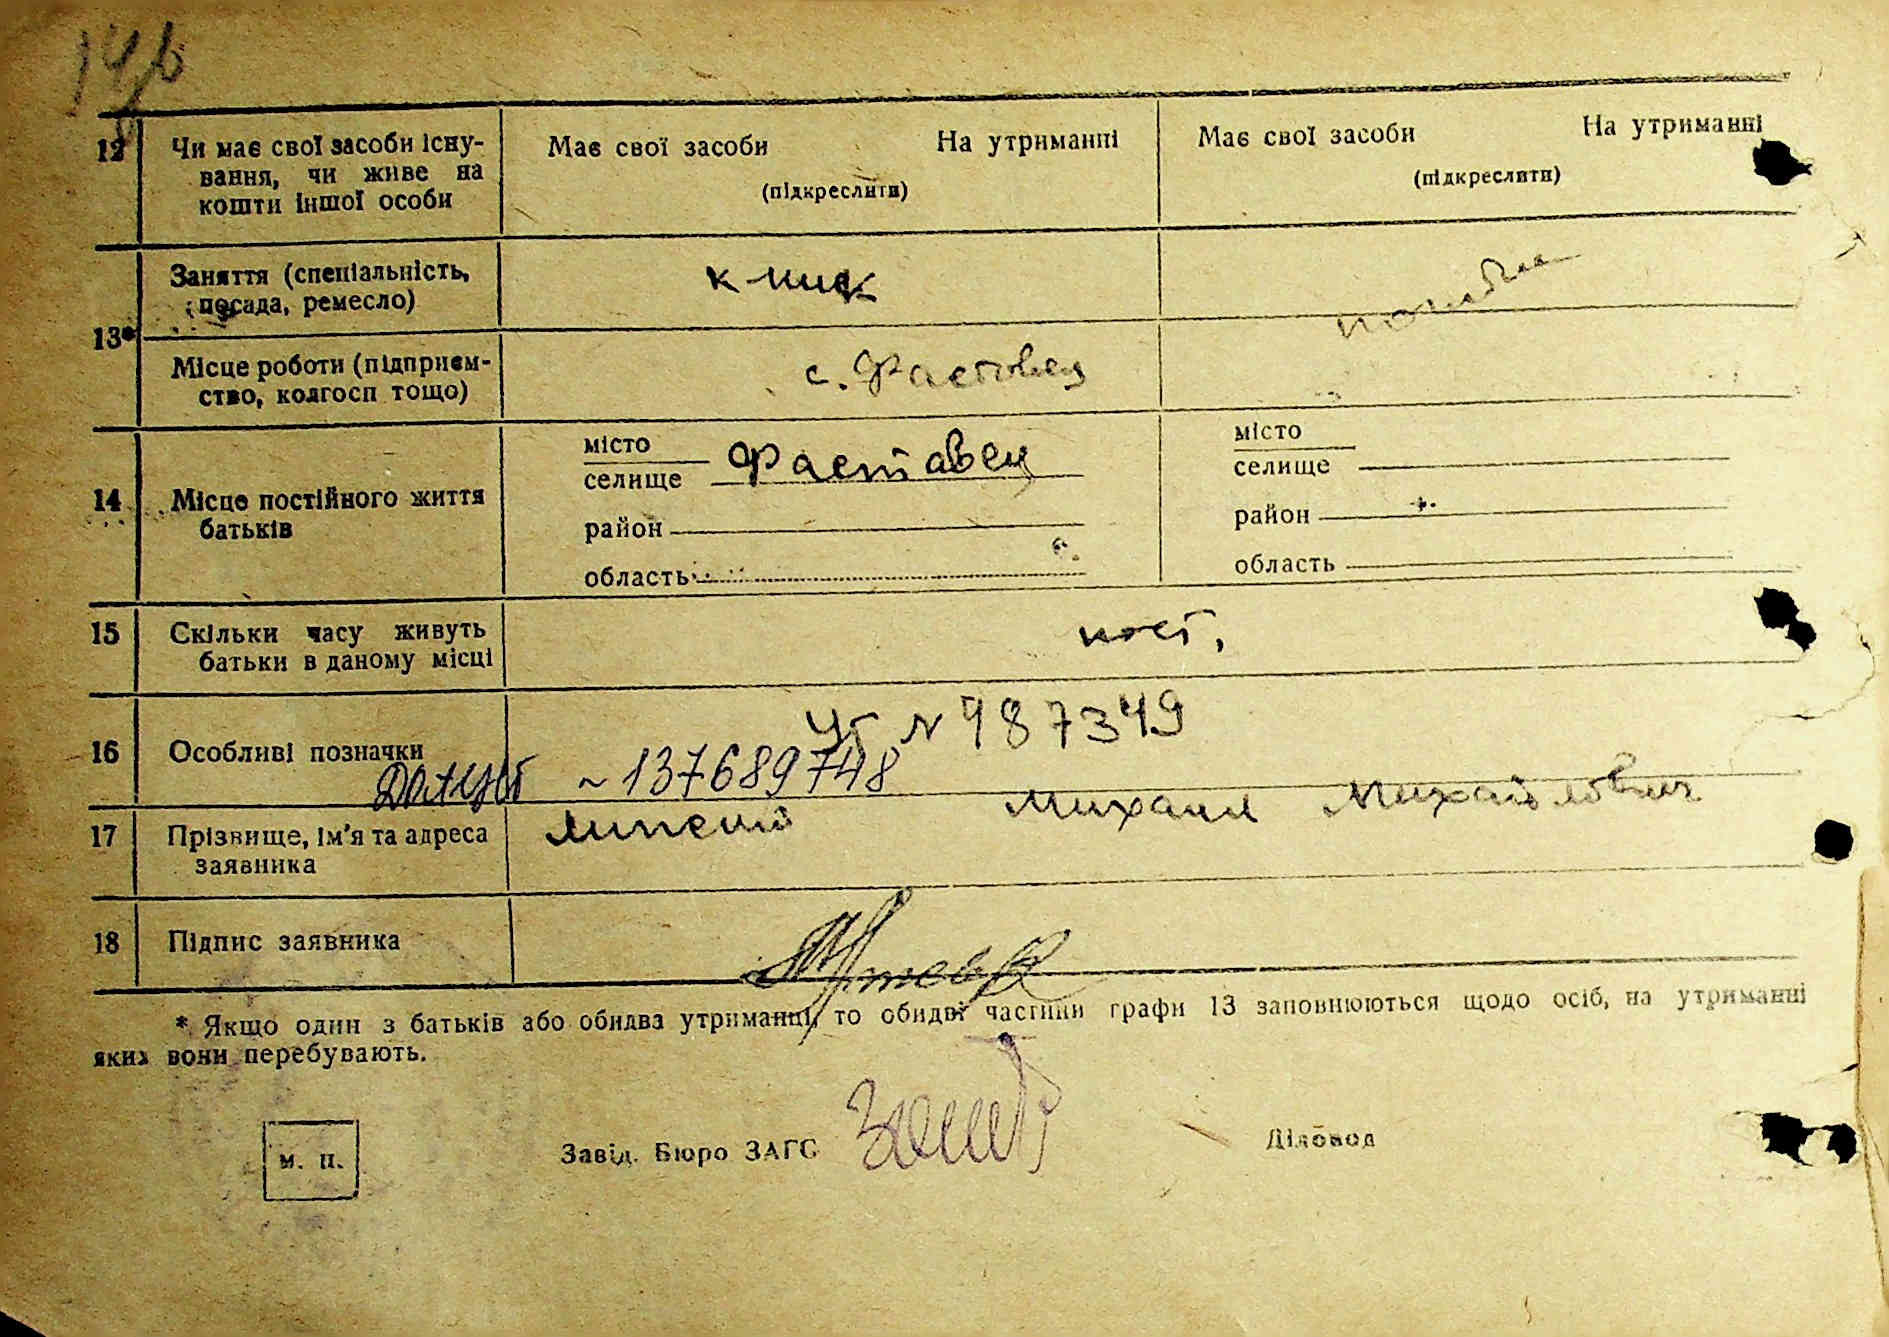 12 Чи має свої засоби існу-
вання, чи живе на
кошти іншої особи
Має свої засоби На утриманні
(підкреслити)
Має свої засоби На утриманні
(підкреслити)
13*
Заняття (спеціальність,
посада, ремесло)
к-ник
Місце роботи (підприєм-
ство, колгосп тощо)
с. Фастовец
14 Місце постійного життя
батьків
місто
селище Фаставец
район
область
місто
селище
район
область
15 Скільки часу живуть
батьки в даному місці
пост.
16 Особливі позначки
N 987349
~ 137689748
17 Прізвище, ім'я та адреса
заявника
Михаил Михайлович
18 Підпис заявника
* Якщо один з батьків або обидва утриманці, то обидві частини графи 13 заповнюються щодо осіб, на утриманні
яких вони перебувають.
м. п.
Завід. Бюро ЗАГС
Діловод